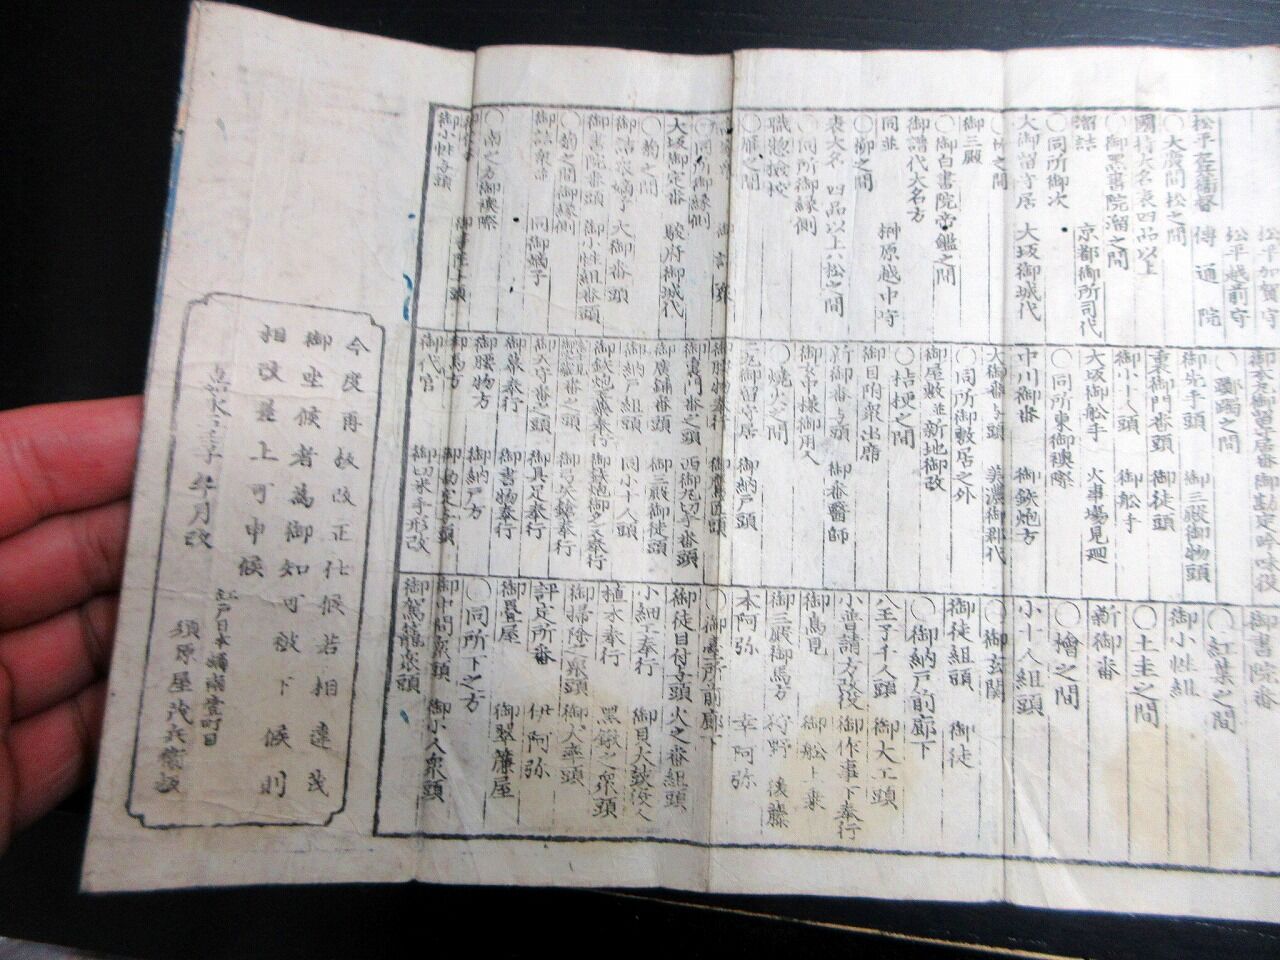 松平加賀守
松平越前守
松平左兵衛督
傳通院
○大廣間松之間
國持大名衆四品以上
○御黒書院溜之間
溜詰
京都御所司代
○同所御次
大御留守居 大坂御城代
○竹之間
御三殿
○御白書院帝鑑之間
御譜代大名方
同並 榊原越中守
○柳之間
表大名 四品以上ハ松之間
○同所御縁側
職惣撿挍
○雁之間
○同所御縁側
大坂御定番 駿府御城代
○菊之間
御詰衆嫡子 大御番頭
御書院番頭 御小性組番頭
○菊之間御縁側
御詰衆並 同御嫡子
○南之方御襖際
御小性与頭
御書院与頭
御本丸御留主居番 御勘定吟味役
○躑躅之間
御先手頭 御三殿御物頭
裏御門番頭 御徒頭
御小十人頭 御船手
大坂御船手 火事場見廻
○同所東御襖際
中川御番 御鉄炮方
大御番与頭 美濃御郡代
○同所御敷居之外
御屋敷並新地御改
○桔梗之間
御目附衆出席
新御番与頭 御番醫師
御女中様御用人
○焼火之間
二丸御留守居 御納戸頭
御腰物奉行
御裏門番之頭 西御丸切手番頭
御廣鋪番頭 御三殿御徒頭
御納戸組頭 同小十人頭
御鉄炮玉薬奉行 御鉄炮御箪笥奉行
御天守番之頭 御具足奉行
御幕奉行 御書物奉行
御腰物方 御納戸方
御馬方 御勘定与頭
御代官 御切米手形改
御書院番
○紅葉之間
御小性組
○土圭之間
新御番
○檜之間
小十人組頭
○御玄関
御徒組頭 御徒
○御納戸前廊下
八王子千人頭 御大工頭
小普請方改役 御作事下奉行
御馬見 御船上乗
御三殿御馬方 狩野 後藤
本阿弥 幸阿弥
○御臺所前廊下
御徒目付与頭 火之番組頭
小細工奉行 御貝太鼓役人
植木奉行 黒鍬之衆頭
御掃除之衆頭 御犬牽頭
評定所番 伊阿弥
御畳屋 御翠簾屋
○同所下之方
御中間衆頭 御小人衆頭
御駕籠衆頭
今度再板改正仕候若相違茂
御坐候者為御知可被下候則
相改差上可申候
嘉永五壬子年 月改
江戸日本橋南壹町目
須原屋茂兵衛板